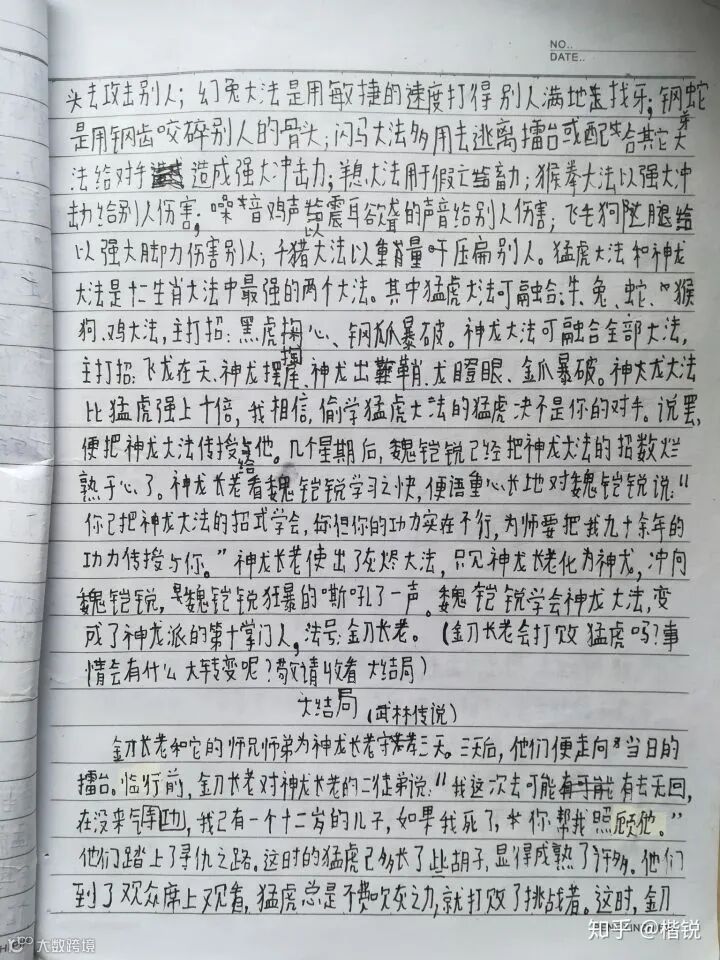 NO..
DATE..
头去攻击别人；幻兔大法是用敏捷的速度打得别人满地找牙；钢蛇
是用钢齿咬碎别人的骨头；闪马大法多用去逃离擂台或配合其它大
法给对手造成强大冲击力；羊息大法用于假亡蓄力；猴拳大法以强大冲
击力给别人伤害；噪音鸡声以震耳欲聋的声音给别人伤害；飞毛狗腿
以强大脚力伤害别人；千猪大法以重量压扁别人。猛虎大法和神龙
大法是十二生肖大法中最强的两个大法。其中猛虎大法可融合：牛、兔、蛇、猴
狗、鸡大法，主打招：黑虎掏心、钢爪暴破。神龙大法可融合全部大法，
主打招：飞龙在天、神龙摆尾、神龙出鞘、龙瞪眼、金爪暴破。神龙大法
比猛虎强上十倍，我相信，偷学猛虎大法的猛虎决不是你的对手。说罢，
便把神龙大法传授给他。几个星期后，魏铠锐已经把神龙大法的招数烂
熟于心了。神龙长老看魏铠锐学习之快，便语重心长地对魏铠锐说：“
你已把神龙大法的招式学会，但你的功力实在不行，为师要把我九十余年的
功力传授与你。”神龙长老使出了灰烬大法，只见神龙长老化为神龙，冲向
魏铠锐，魏铠锐狂暴的嘶吼了一声。魏铠锐学会神龙大法，变
成了神龙派的第十掌门人，法号：金刀长老。（金刀长老会打败猛虎吗？事
情会有什么大转变呢？敬请收看大结局）
大结局（武林传说）
金刀长老和它的师兄师弟为神龙长老守孝三天。三天后，他们便走向当日的
擂台。临行前，金刀长老对神龙长老的二徒弟说：“我这次去可能有去无回，
在没来气功，我已有一个十二岁的儿子，如果我死了，你帮我照顾他。”
他们踏上了寻仇之路。这日的猛虎已多长了些胡子，显得成熟了许多。他们
到了观众席上观看，猛虎总是不费吹灰之力，就打败了挑战者。这时，金刀
知乎 @楷锐
大数跨境